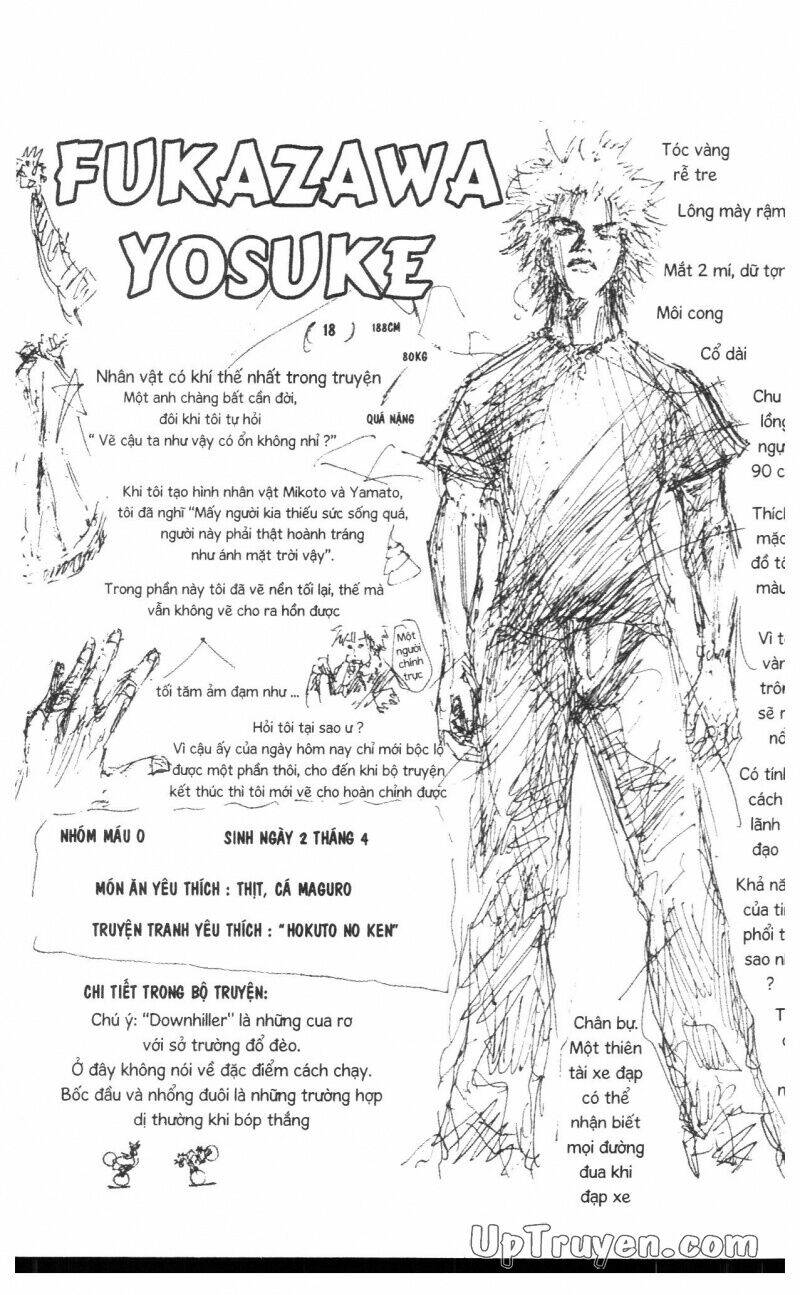 FUKAZAWA
YOSUKE
( 18 )
188CM
80KG
QUÁ NẶNG
Nhân vật có khí thế nhất trong truyện
Một anh chàng bất cần đời,
đôi khi tôi tự hỏi
“ Vẽ cậu ta như vậy có ổn không nhỉ ?”
Khi tôi tạo hình nhân vật Mikoto và Yamato,
tôi đã nghĩ “Mấy người kia thiếu sức sống quá,
người này phải thật hoành tráng
như ánh mặt trời vậy”.
Trong phần này tôi đã vẽ nền tối lại, thế mà
vẫn không vẽ cho ra hồn được
tối tăm ảm đạm như ...
Một
người
chính
trực
Hỏi tôi tại sao ư ?
Vì cậu ấy của ngày hôm nay chỉ mới bộc lộ
được một phần thôi, cho đến khi bộ truyện
kết thúc thì tôi mới vẽ cho hoàn chỉnh được
NHÓM MÁU O
SINH NGÀY 2 THÁNG 4
MÓN ĂN YÊU THÍCH : THỊT, CÁ MAGURO
TRUYỆN TRANH YÊU THÍCH : “HOKUTO NO KEN”
CHI TIẾT TRONG BỘ TRUYỆN:
Chú ý: “Downhiller” là những cua rơ
với sở trường đổ đèo.
Ở đây không nói về đặc điểm cách chạy.
Bốc đầu và nhổng đuôi là những trường hợp
dị thường khi bóp thắng
Tóc vàng
rễ tre
Lông mày rậm
Mắt 2 mí, dữ tợn
Môi cong
Cổ dài
Chu
lồng
ngự
90 c
Thích
mặc
đồ tố
màu
Vì t
vàn
trôn
sẽ r
nổ
Có tính
cách
lãnh
đạo
Khả nă
của ti
phổi t
sao n
?
T
Chân bự.
Một thiên
tài xe đạp
có thể
nhận biết
mọi đường
đua khi
đạp xe
UpTruyen.com